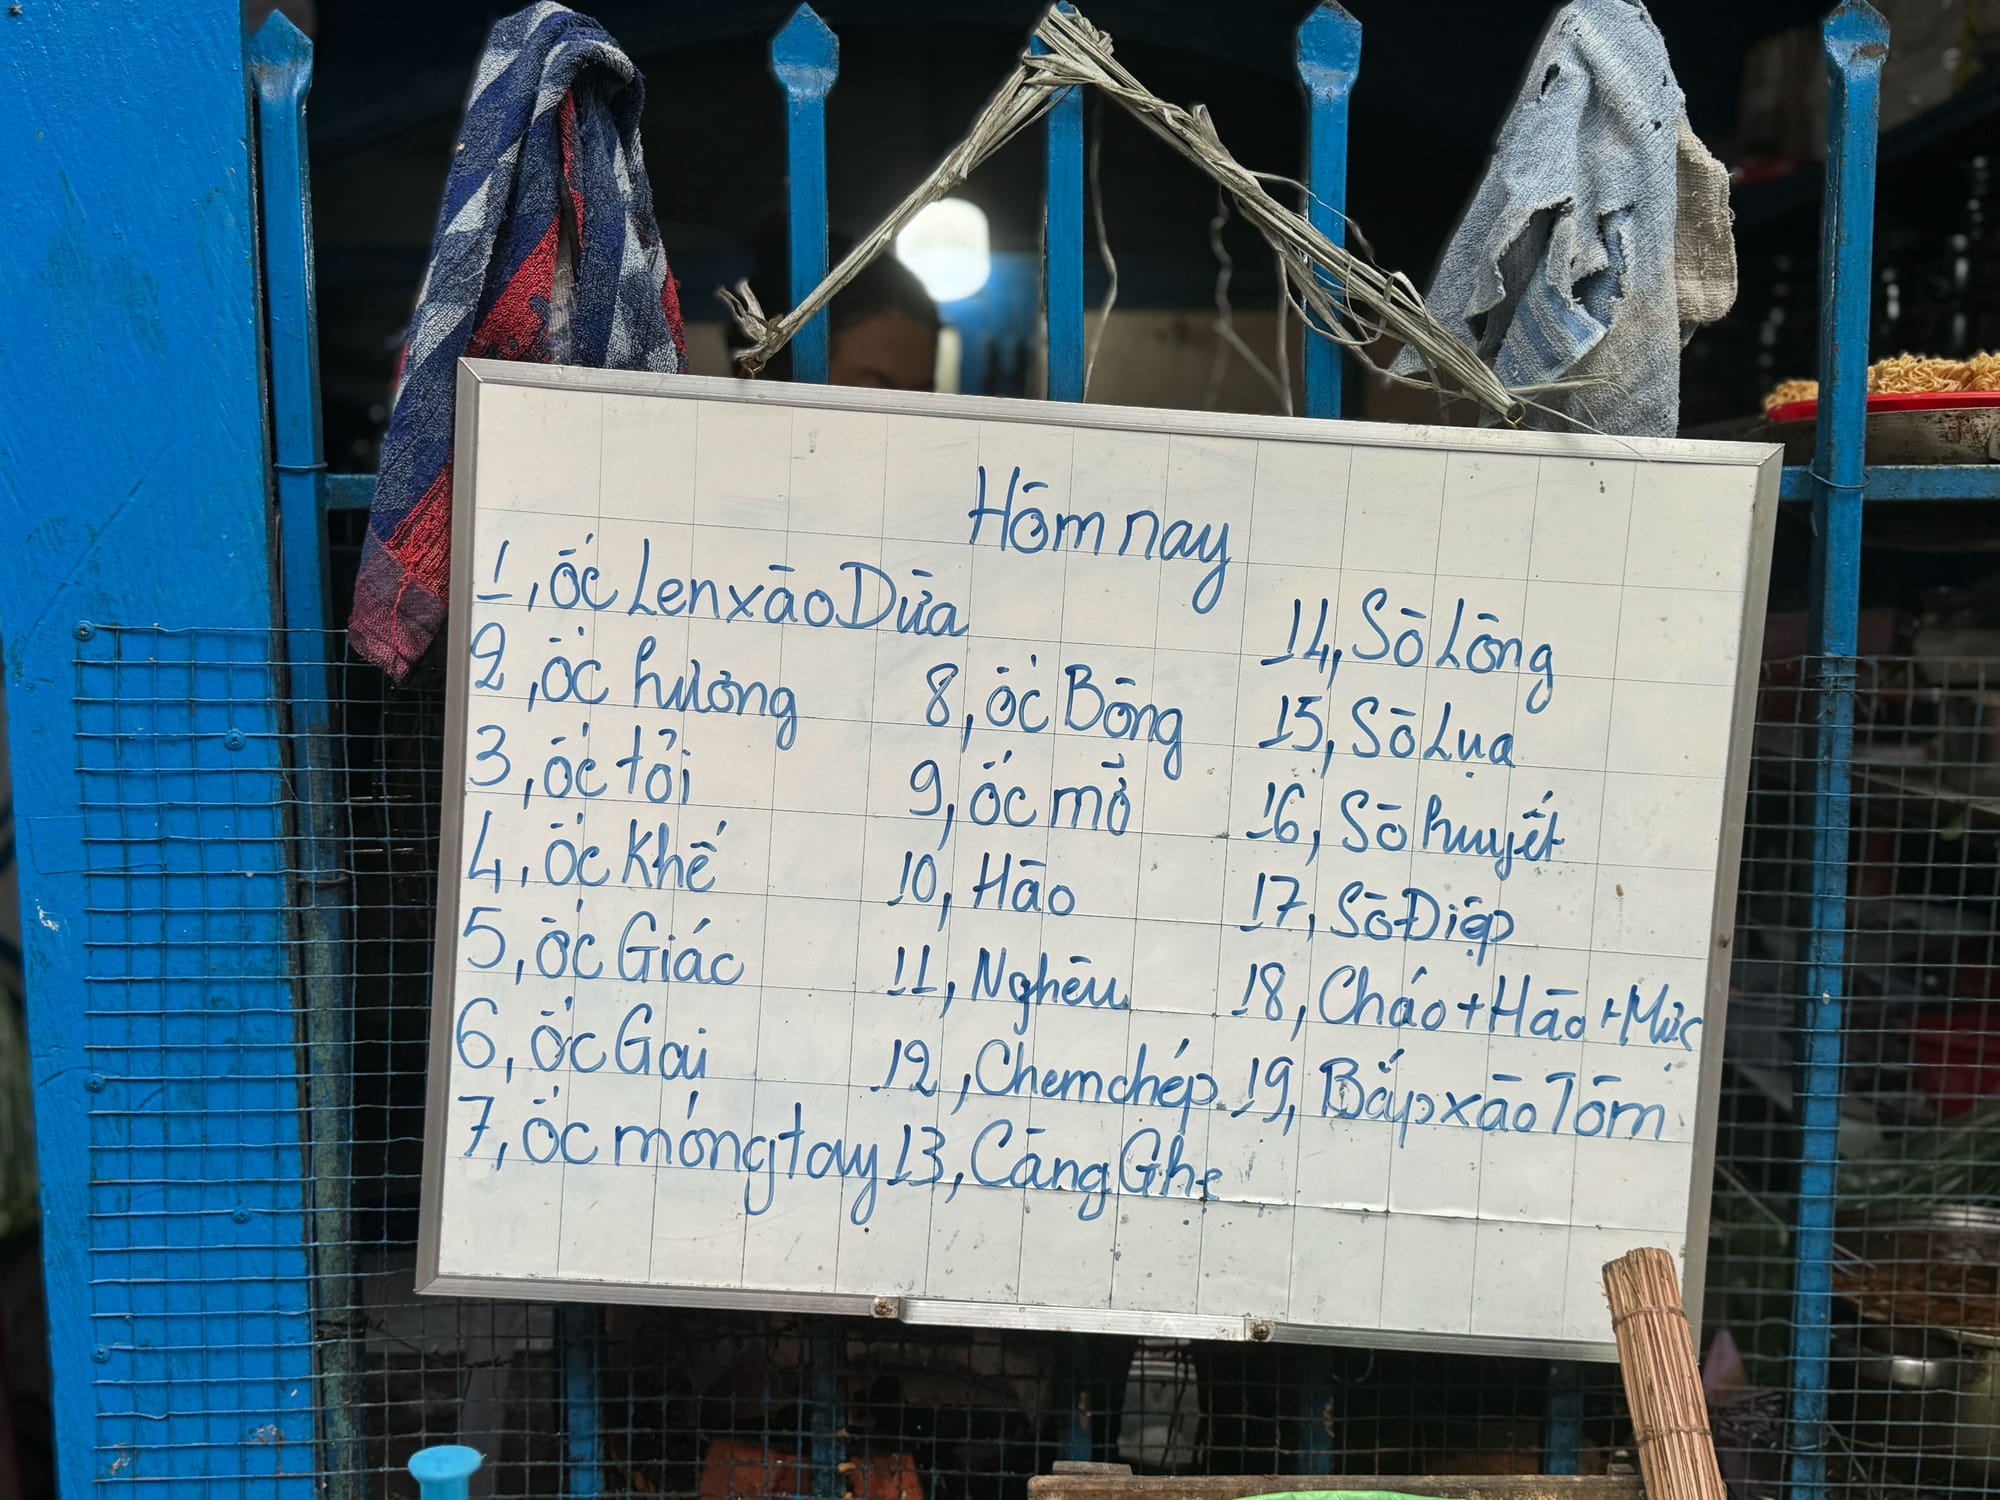 Hôm nay
1, ốc Len xào Dừa
2, ốc hương
3, ốc tỏi
4, ốc Khế
5, ốc Giác
6, ốc Gai
7, ốc móng tay
8, ốc Bông
9, ốc mỡ
10, Hào
11, Nghêu
12, Chem chép
13, Càng Ghẹ
14, Sò Lông
15, Sò Lụa
16, Sò huyết
17, Sò Điệp
18, Cháo + Hào + Mực
19, Bắp xào Tôm